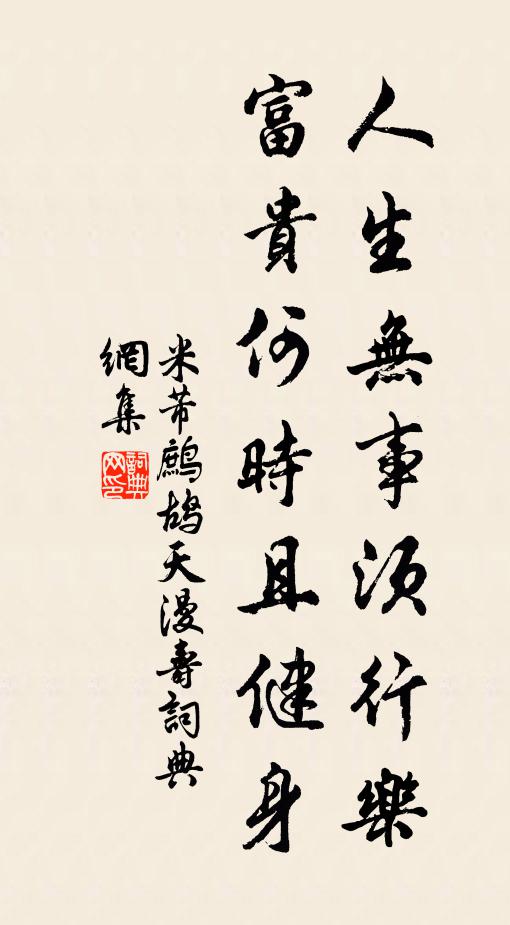 人生無事須行樂
富貴何時且健身
米芾鷓鴣天漫壽詞典
網集
詞典
网印